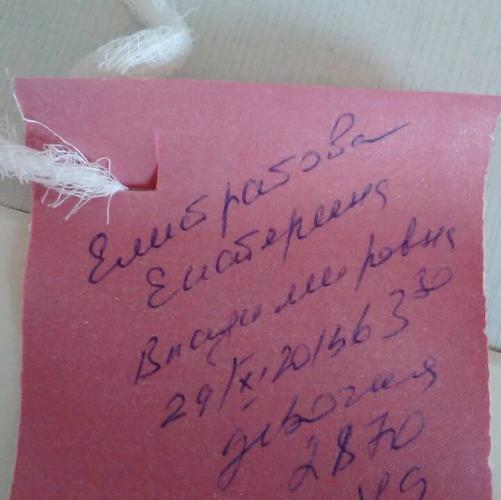 Елистратова
Екатерина
Владимировна
29/XI.2015г в 3³⁰
девочка
2870
49